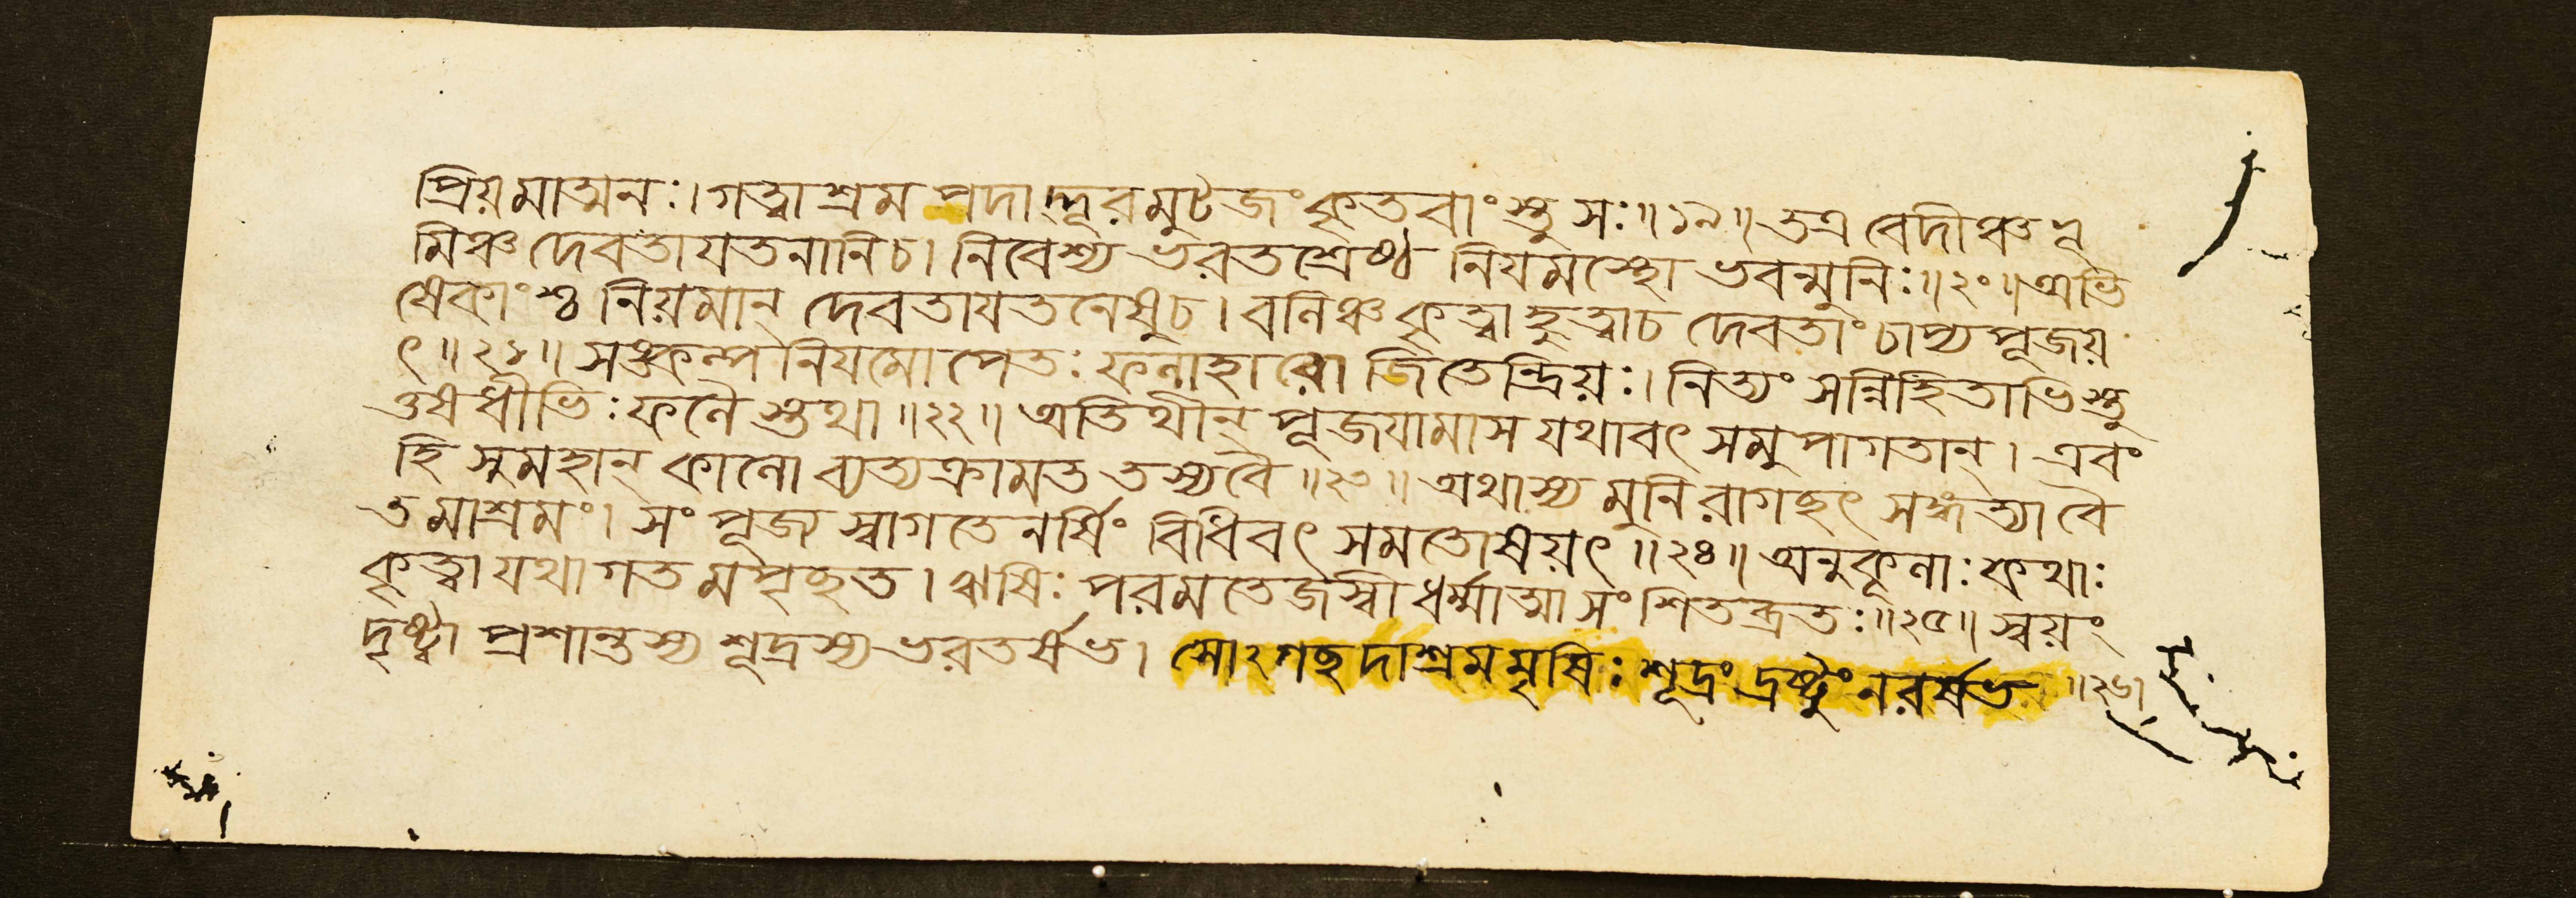 প্রিয়মাত্মন:।গত্বাশ্রমপদাদ্দূরমুটজংকৃতবাংস্তুস:॥১৯॥তত্র বেদীঞ্চভূ
মিঞ্চ দেবতাযতনানিচ। নিবেশ্য ভরতশ্রেষ্ঠ নিযমস্থো ভবন্মুনি:॥২০॥অভি
ষেকাংশ্চ নিয়মান্ দেবতাযতনেষুচ। বলিঞ্চ কৃত্বাহুত্বাচ দেবতাং চাপ্য পূজয়
ৎ॥২১॥ সঙ্কল্প নিযমোপেত: ফলাহারো জিতেন্দ্রিয়:। নিত্যং সন্নিহিতাভিস্তু
ওষধীভি: ফলৈ স্তথা॥২২॥ অতিথীন্ পূজযামাস যথাবৎ সমুপাগতান্। এবং
হি সুমহান্ কালো ব্যত্যক্রামত তস্যবৈ॥২৩॥ অথাস্য মুনিরাগছৎ সঙ্গত্যাবৈ
তমাশ্রমং। সংপূজ্য স্বাগতেনর্ষিং বিধিবৎ সমতোষয়ৎ॥২৪॥ অনুকূলা: কথা:
কৃত্বা যথাগতমপৃছত। ঋষি: পরমতেজস্বী ধর্ম্মাত্মা সংশিতব্রত:॥২৫॥ স্বয়ং
দৃষ্ট্বা প্রশান্তস্য শূদ্রস্য ভরতর্ষভ। সোঽগছদাশ্রমমৃষি: শূদ্রং দ্রষ্টুং নরর্ষভ ॥২৬।